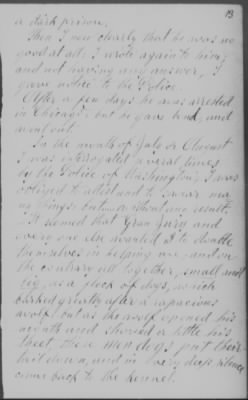 13
a dark prison.
Then I new clearly that he was no
good at all: I wrote again to him;
and not having any answer, I
gave notice to the Police.
After a few days he was arrested
in Chicago; but he gave bond, and
went out.
In the month of July or August
I was interrogated several times
by the Police of Washington; I was
obliged to attest and to swear ma
ny things: but without any result.
It seemed that Gran Jury and
every one else wanted to
themselves in helping me; and on
the contrary all together, small and
big, as a flock of dogs, which
barked greatly after a rapacious
wolf: but as the wolf opened his
mouth and showed a little his
theet, these men dogs put their
tail down, and in very deep silence
came back to the kennel.